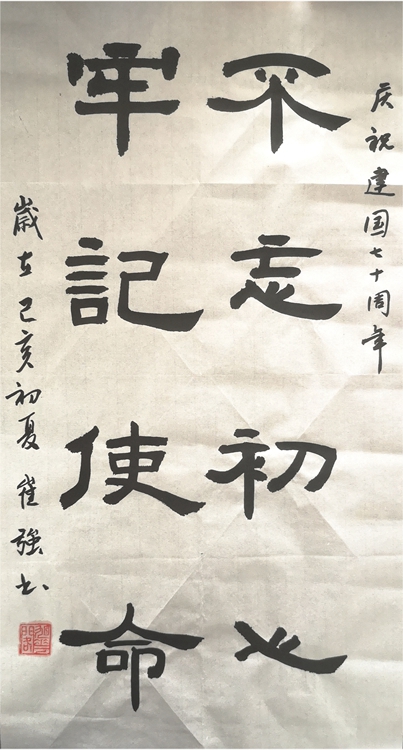 庆祝建国七十周年
不忘初心
牢记使命
岁在己亥初夏崔强书